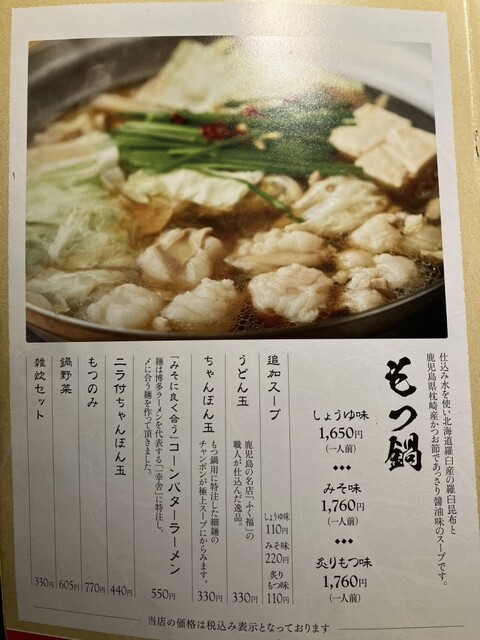 仕込み水を使い北海道羅臼産の羅臼昆布と
鹿児島県枕崎産かつお節であっさり醤油味のスープです。
もつ鍋
しょうゆ味
1,650円
(一人前)
みそ味
1,760円
(一人前)
炙りもつ味
1,760円
(一人前)
追加スープ
しょうゆ味
110円
みそ味
220円
炙り
もつ味
110円
うどん玉
鹿児島の名店「ふく福」の
職人が仕込んだ逸品。
330円
ちゃんぽん玉
もつ鍋用に特注した細麺の
チャンポンが極上スープにからみます。
330円
「みそに良く合う」コーンバターラーメン
麺は博多ラーメンを代表する「一幸舎」に特注し、
〆に合う麺を作って頂きました。
550円
ニラ付ちゃんぽん玉
440円
もつのみ
770円
鍋野菜
605円
雑炊セット
330円
当店の価格は税込み表示となっております